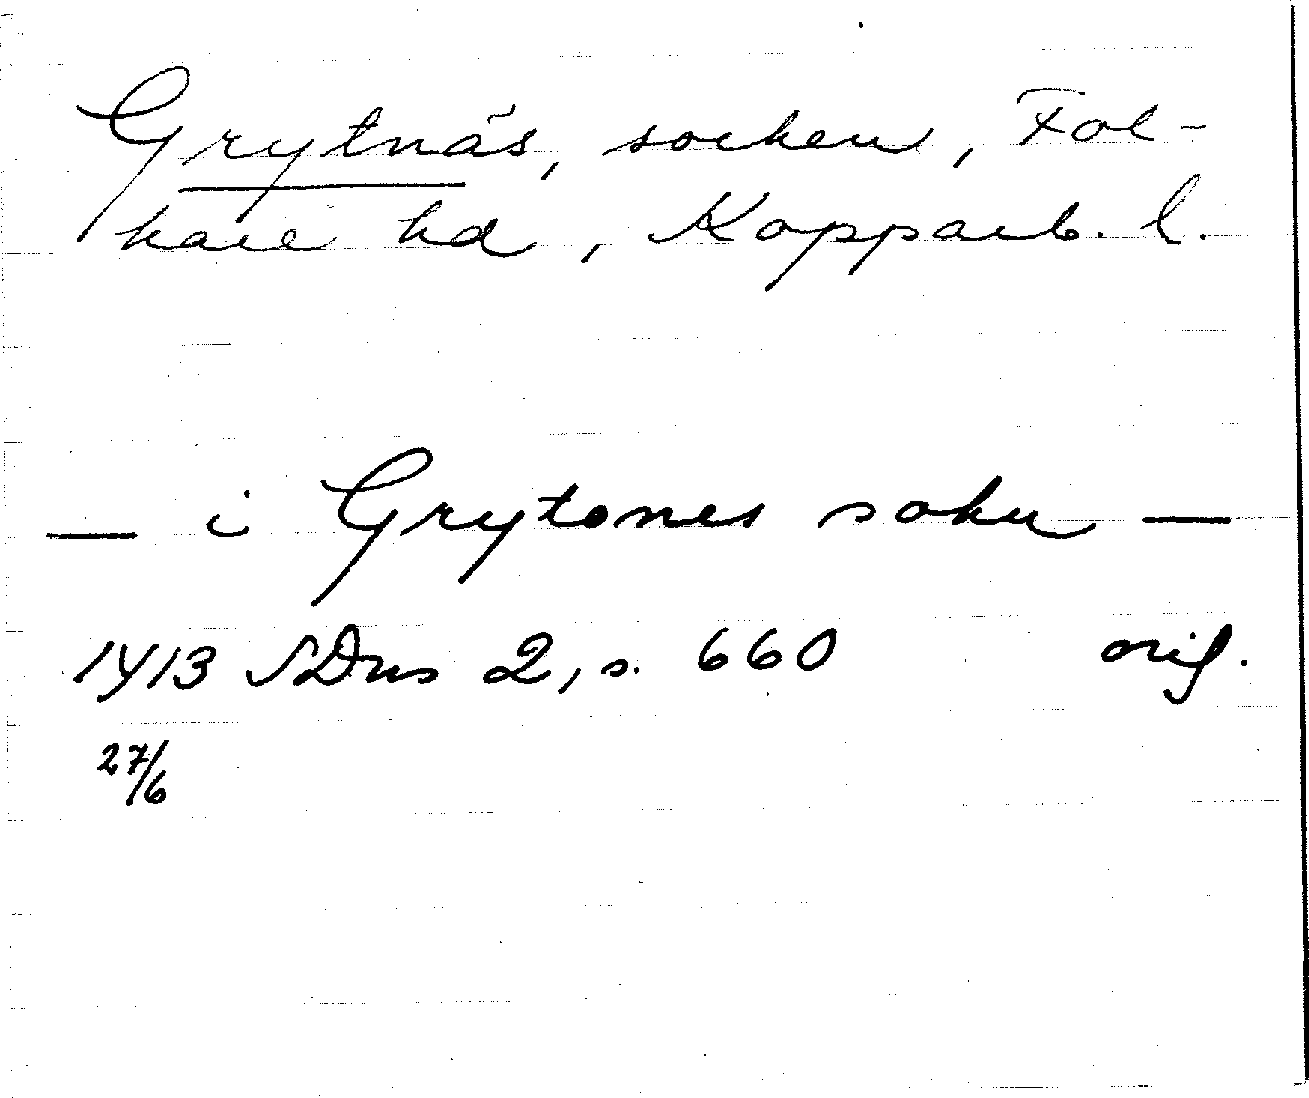 Grytnäs, socken, Fol-
kare hd, Kopparb. l.
— i Grytones sokn —
1413 SDns 2, s. 660 orig.
27/6